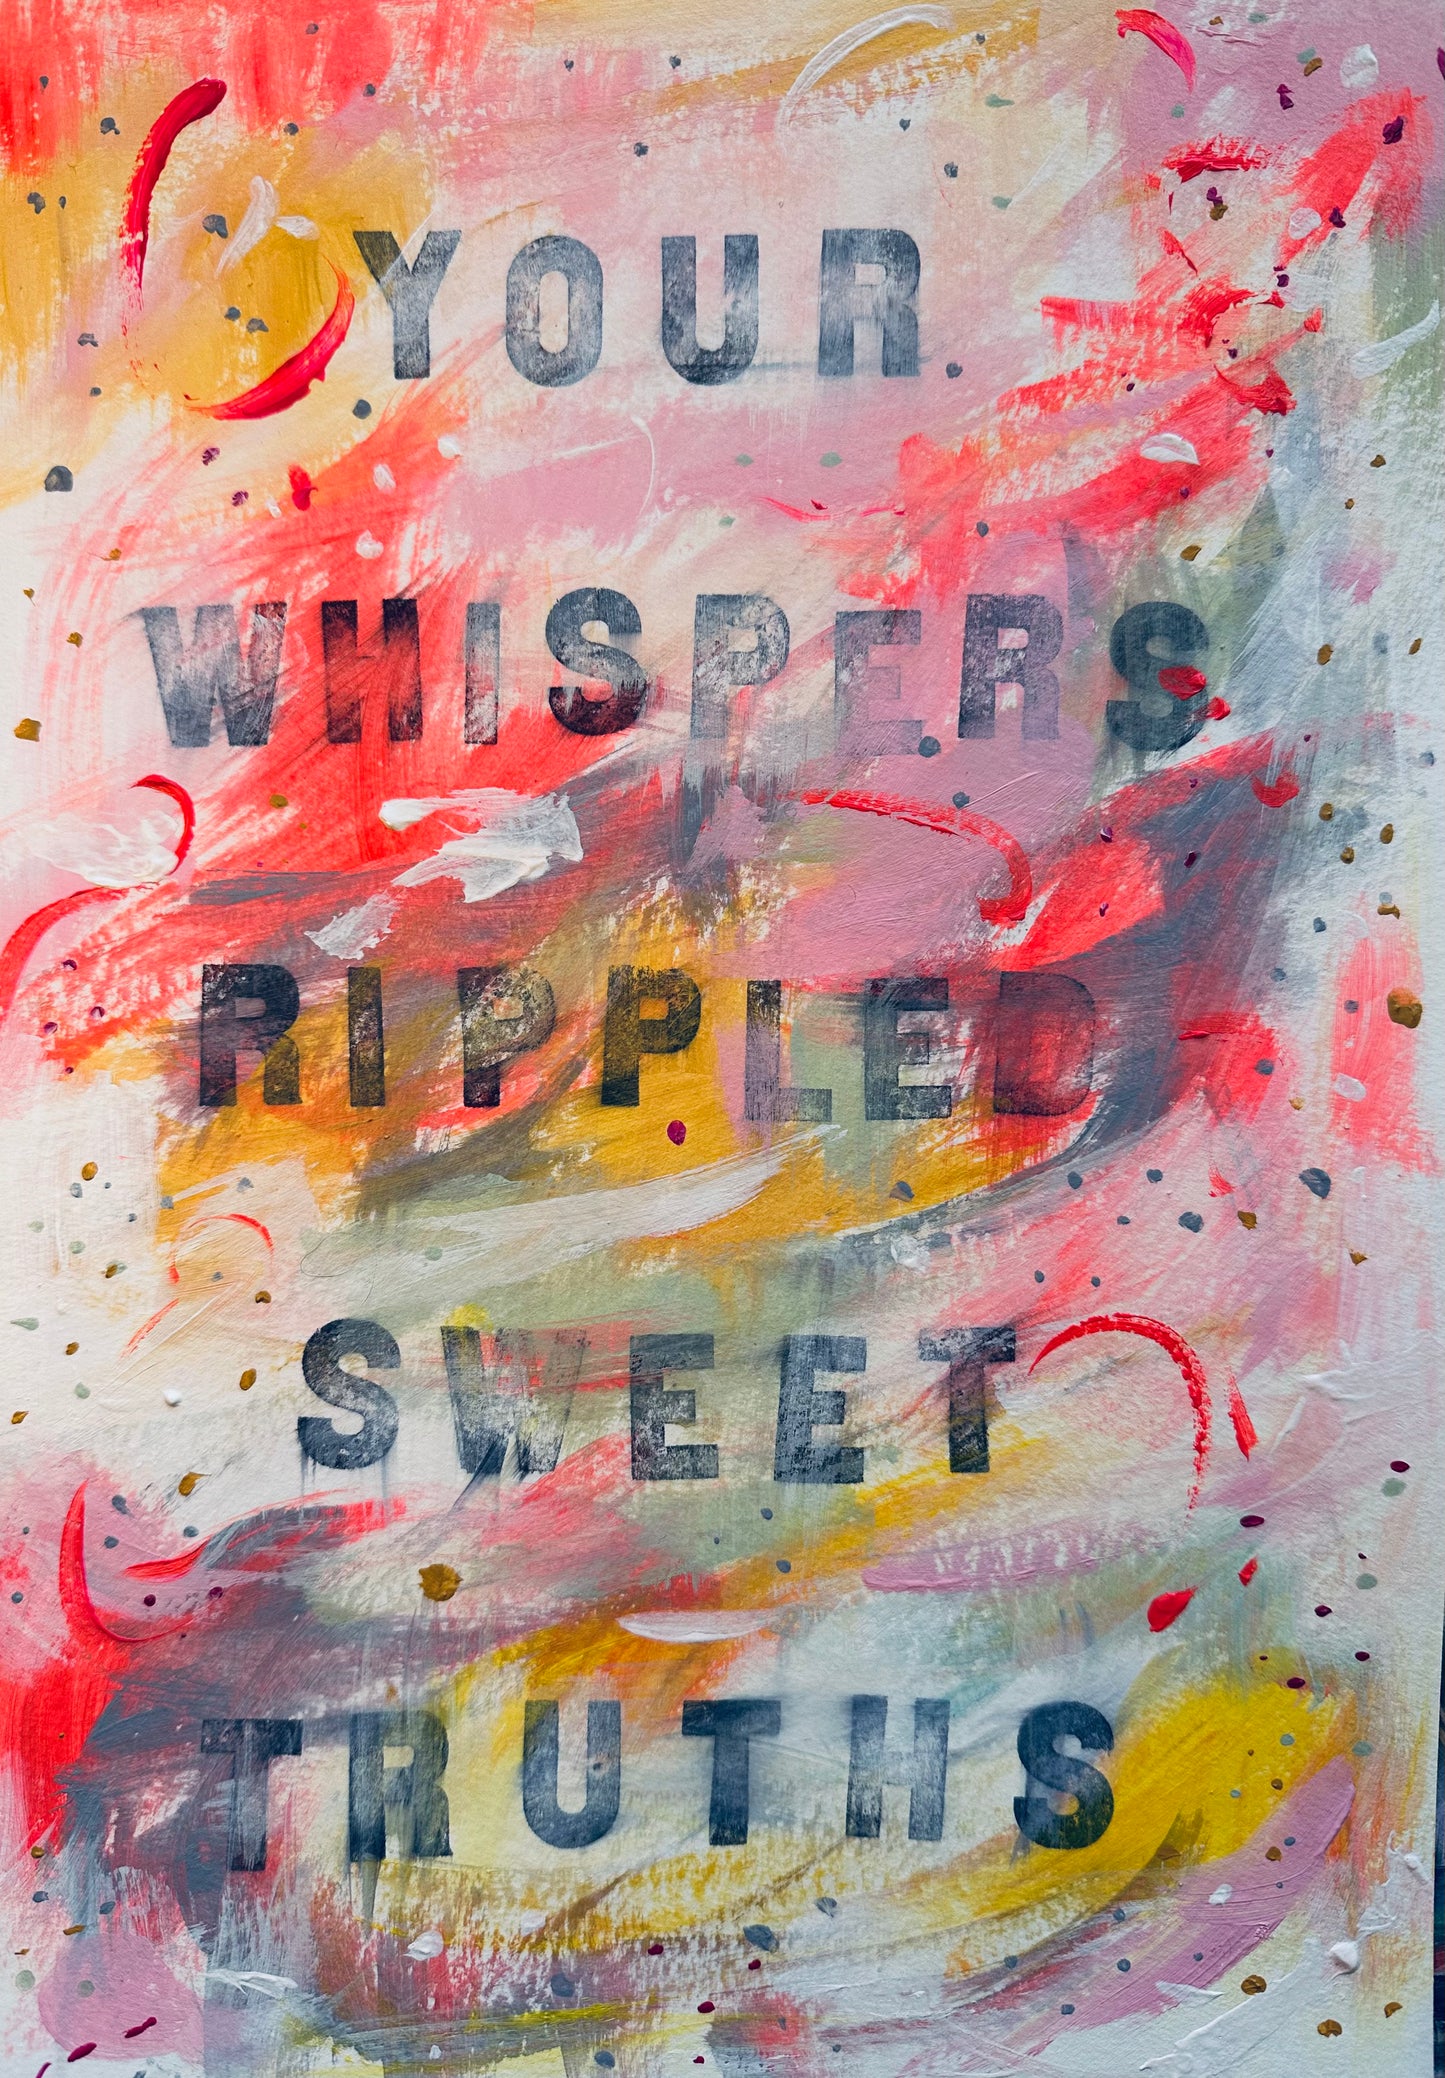 YOUR
WHISPERS
RIPPLED
SWEET
TRUTHS